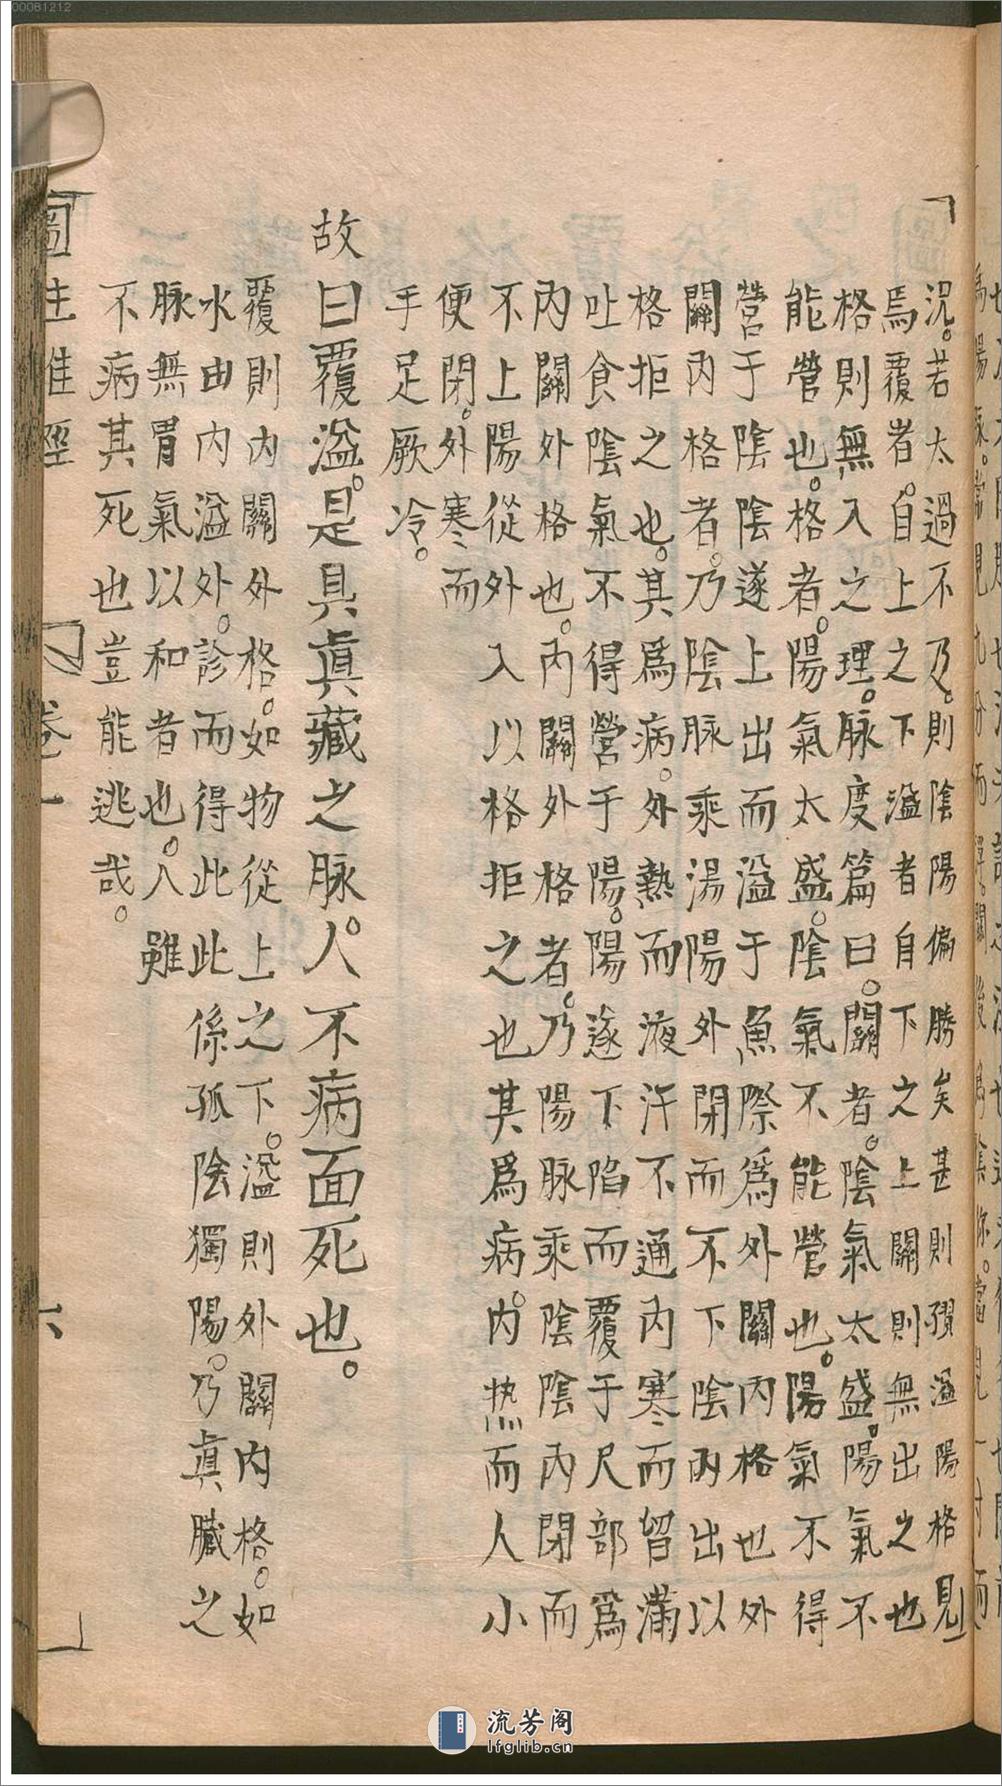 況。若太過不及。則陰陽偏勝矣甚則覆溢陽格見
焉覆者。自上之下溢者自下之上關則無出之也
格則無入之理。脉度篇曰。關者。陰氣太盛。陽氣不
能營也。格者。陽氣太盛。陰氣不能營也。陽氣不得
營于陰陰遂上出而溢于魚際爲外關內格也外
關內格者。乃陰脉乘湯陽外閉而不下陰內出以
格拒之也。其爲病。外熱而液汗不通內寒而留滿
吐食陰氣不得營于陽。陽遂下陷而覆于尺部爲
內關外格也。內關外格者。乃陽脉乘陰陰內閉而
不上陽從外入以格拒之也其爲病。內热而人小
便閉。外寒而
手足厥冷。
故曰覆溢。是具眞藏之脉。人不病面死也。
覆則內關外格。如物從上之下。溢則外關內格。如
水由內溢外。診而得此此係孤陰獨陽。乃眞臟之
脉無胃氣以和者也。人雖
不病其死也豈能逃哉。
圖注難經
卷一
六
00081212
流芳阁
lfglib.cn